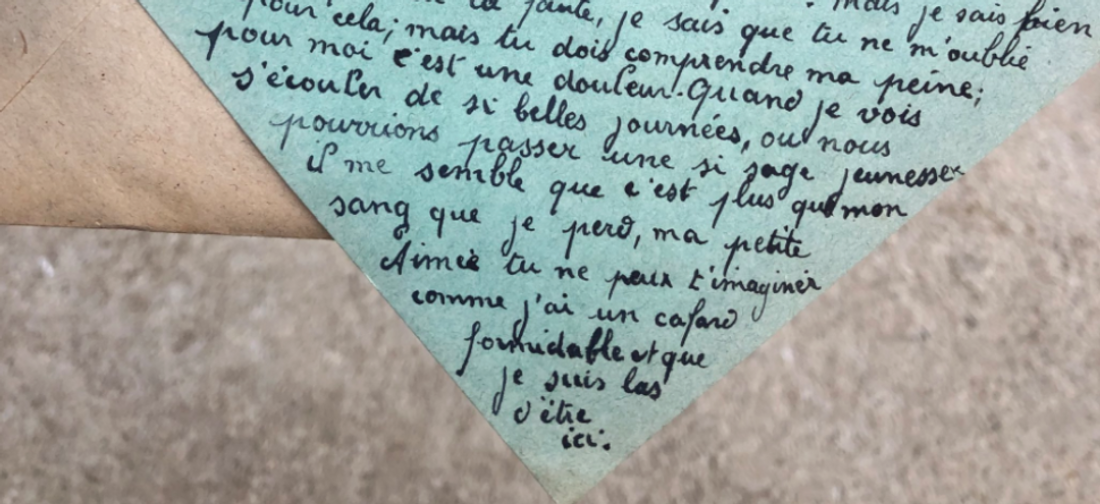 la faute, je sais que tu ne m'oublie
mais je sais bien
pour cela; mais tu dois comprendre ma peine;
pour moi c'est une douleur. Quand je vois
s'écouler de si belles journées, ou nous
pourrions passer une si sage jeunesse
il me semble que c'est plus que mon
sang que je perd, ma petite
Aimée tu ne peux t'imaginer
comme j'ai un cafard
formidable et que
je suis las
d'être
ici.